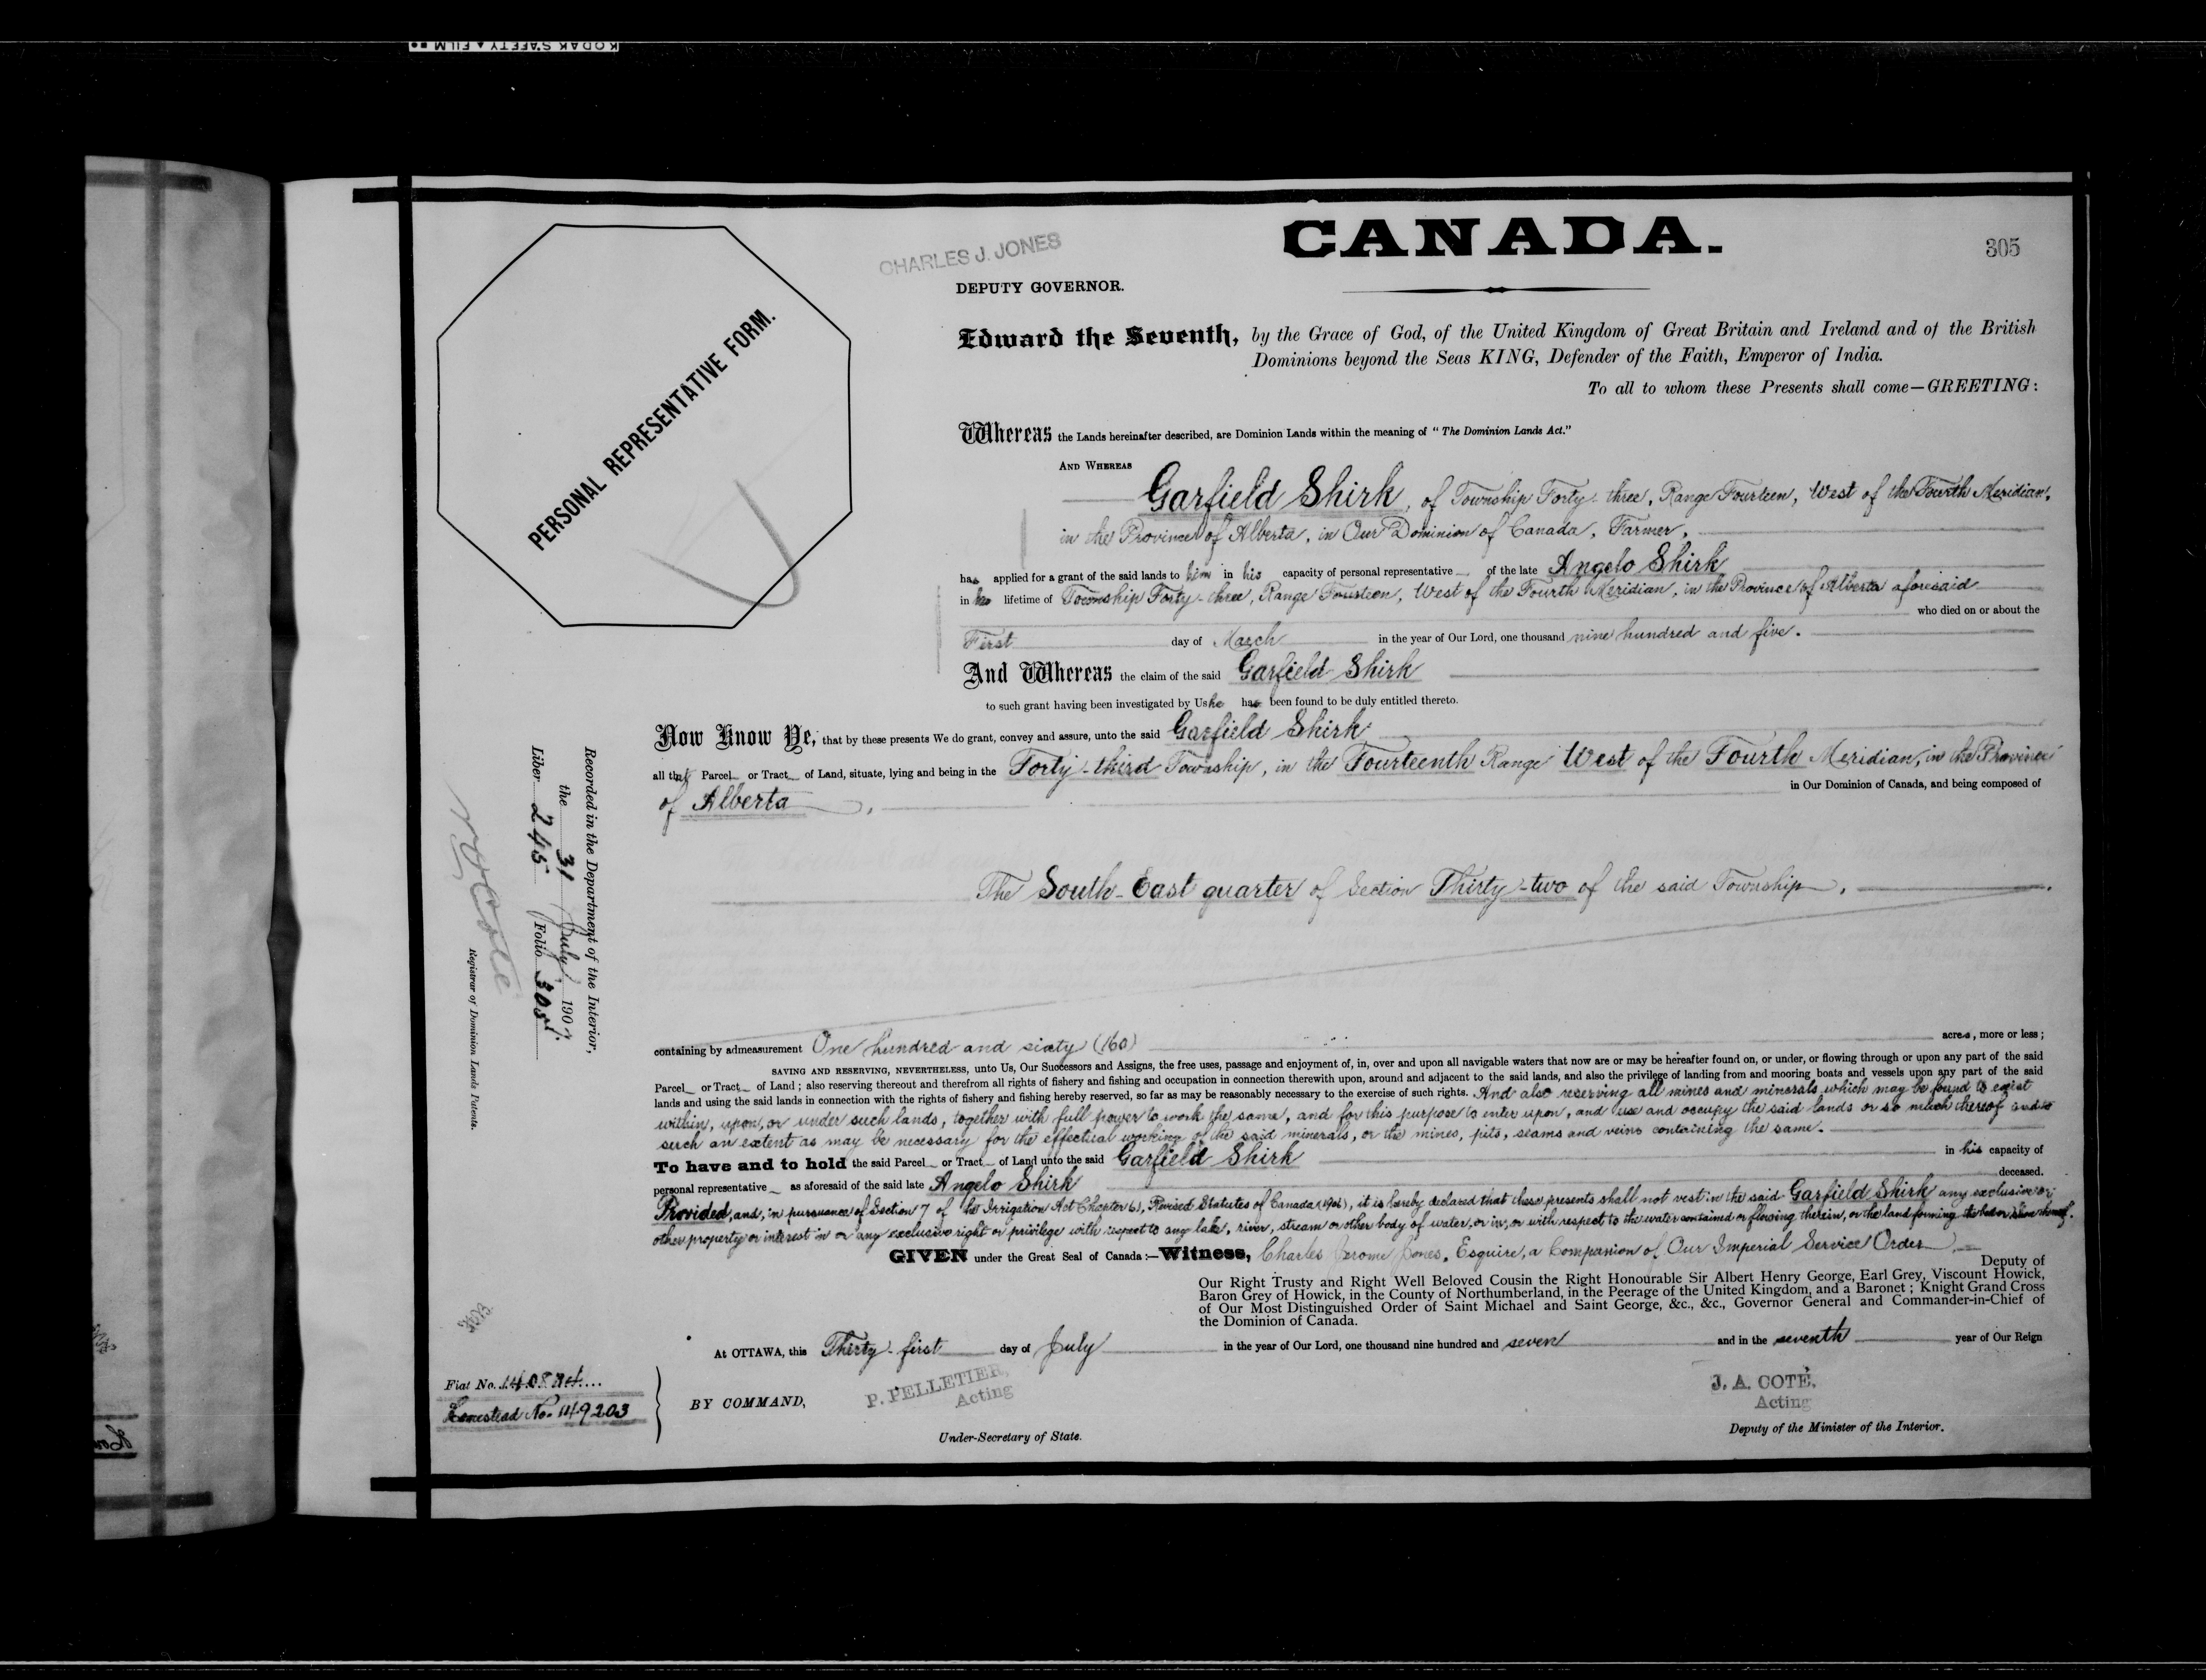 KODAK SAFETY FILM
CANADA.
305
CHARLES J. JONES
DEPUTY GOVERNOR.
PERSONAL REPRESENTATIVE FORM.
Edward the Seventh, by the Grace of God, of the United Kingdom of Great Britain and Ireland and of the British
Dominions beyond the Seas KING, Defender of the Faith, Emperor of India.
To all to whom these Presents shall come—GREETING:
Whereas the Lands hereinafter described, are Dominion Lands within the meaning of "The Dominion Lands Act."
AND WHEREAS
Garfield Shirk, of Township Forty-three, Range Fourteen, West of the Fourth Meridian,
in the Province of Alberta, in Our Dominion of Canada, Farmer,
has applied for a grant of the said lands to him in his capacity of personal representative of the late Angelo Shirk
in his lifetime of Township Forty-three, Range Fourteen, West of the Fourth Meridian, in the Province of Alberta aforesaid
who died on or about the
First day of March in the year of Our Lord, one thousand nine hundred and five.
And Whereas the claim of the said Garfield Shirk
to such grant having been investigated by Us he has been found to be duly entitled thereto.
Now Know Ye, that by these presents We do grant, convey and assure, unto the said Garfield Shirk
all that Parcel or Tract of Land, situate, lying and being in the Forty-third Township, in the Fourteenth Range West of the Fourth Meridian, in the Province
of Alberta, in Our Dominion of Canada, and being composed of
The South-East quarter of Section Thirty-two of the said Township.
containing by admeasurement One hundred and sixty (160) acres, more or less;
SAVING AND RESERVING, NEVERTHELESS, unto Us, Our Successors and Assigns, the free uses, passage and enjoyment of, in, over and upon all navigable waters that now are or may be hereafter found on, or under, or flowing through or upon any part of the said
Parcel or Tract of Land; also reserving thereout and therefrom all rights of fishery and fishing and occupation in connection therewith upon, around and adjacent to the said lands, and also the privilege of landing from and mooring boats and vessels upon any part of the said
lands and using the said lands in connection with the rights of fishery and fishing hereby reserved, so far as may be reasonably necessary to the exercise of such rights. And also reserving all mines and minerals which may be found to exist
within, upon, or under such lands, together with full power to work the same, and for this purpose to enter upon, and use and occupy the said lands or so much thereof and to
such an extent as may be necessary for the effectual working of the said minerals, or the mines, pits, seams and veins containing the same.
To have and to hold the said Parcel or Tract of Land unto the said Garfield Shirk in his capacity of
personal representative as aforesaid of the said late Angelo Shirk deceased.
Provided, and, in pursuance of Section 7 of the Irrigation Act Chapter 61, Revised Statutes of Canada (1906), it is hereby declared that these presents shall not vest in the said Garfield Shirk any exclusive or
other property or interest in or any exclusive right or privilege with respect to any lake, river, stream or other body of water, or in, or with respect to the water contained or flowing therein, or the land forming the bed or shore thereof.
GIVEN under the Great Seal of Canada:—Witness, Charles Jerome Jones, Esquire, a Companion of Our Imperial Service Order
Deputy of
Our Right Trusty and Right Well Beloved Cousin the Right Honourable Sir Albert Henry George, Earl Grey, Viscount Howick,
Baron Grey of Howick, in the County of Northumberland, in the Peerage of the United Kingdom, and a Baronet; Knight Grand Cross
of Our Most Distinguished Order of Saint Michael and Saint George, &c., &c., Governor General and Commander-in-Chief of
the Dominion of Canada.
At OTTAWA, this Thirty-first day of July in the year of Our Lord, one thousand nine hundred and seven and in the seventh year of Our Reign
BY COMMAND,
P. PELLETIER,
Acting
Under-Secretary of State.
J. A. COTÉ,
Acting
Deputy of the Minister of the Interior.
Fiat No.
Homestead No. 149203
Recorded in the Department of the Interior,
the 31 July 1907.
Liber 245 Folio 305
Registrar of Dominion Lands Patents.